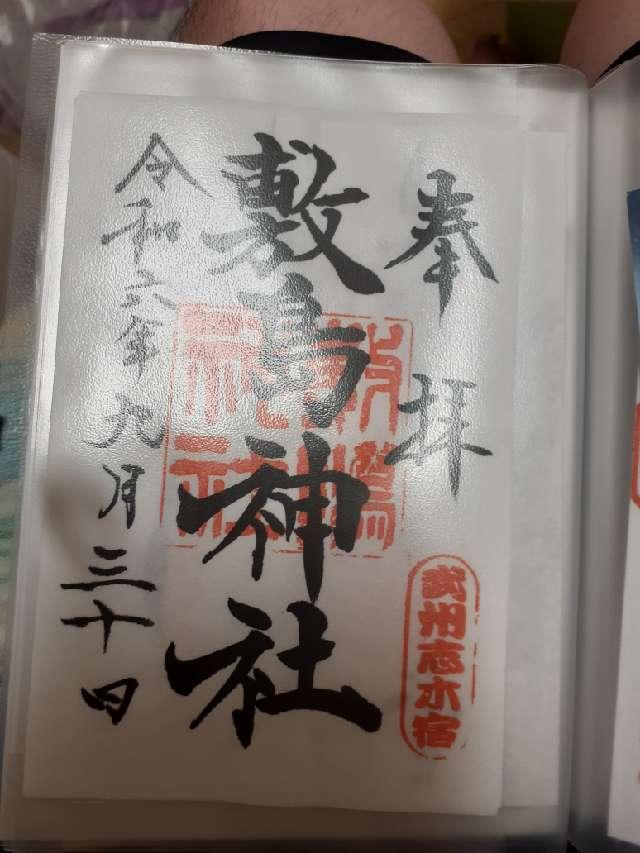 奉拝
武州志木宿
敷島神社
敷島神社
令和六年九月三十日